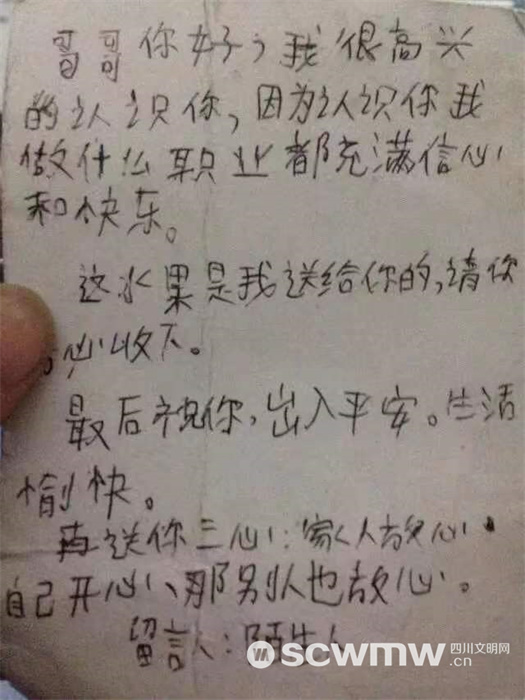 哥哥你好，我很高兴
的认识你，因为认识你我
做什么职业都充满信心
和快乐。
这水果是我送给你的，请你
心收下。
最后祝你，出入平安。生活
愉快。
再送你三心：家人放心、
自己开心、那别人也放心。
留言人：陌生人
scwmw 四川文明网
.cn